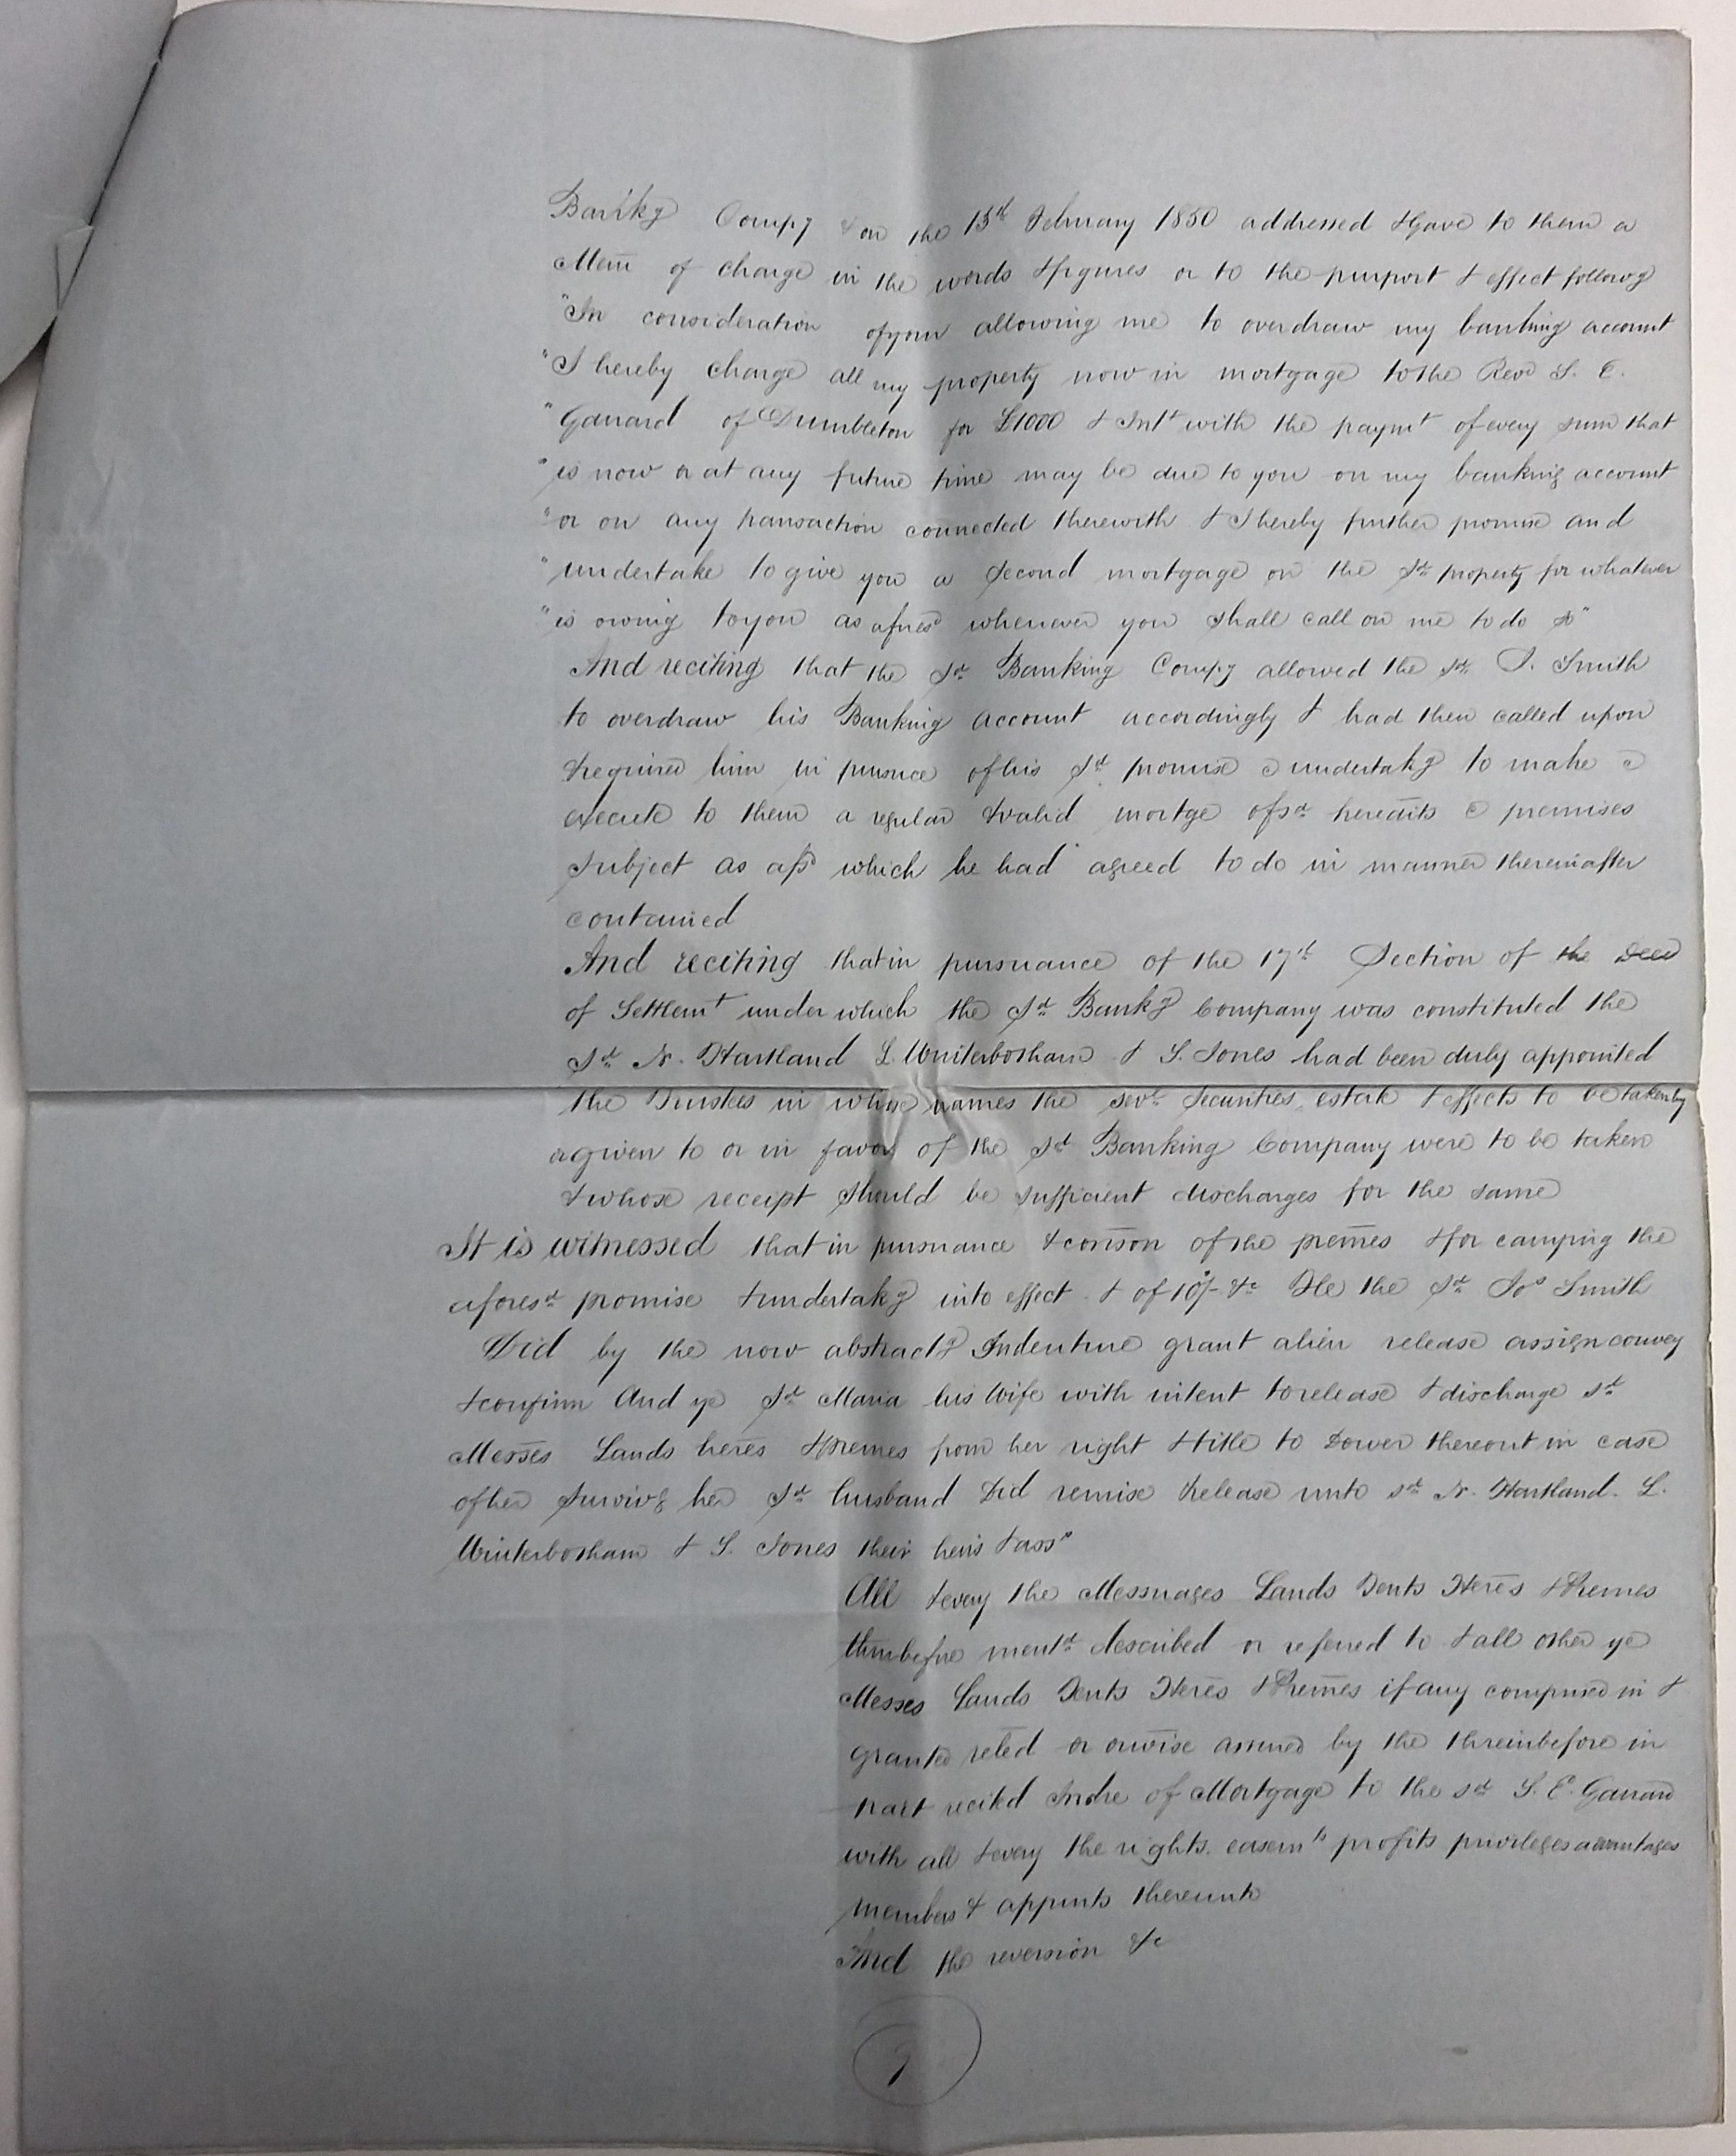 Bankg Compy & on the 13th February 1850 addressed & gave to them a
Mem of charge in the words & figures or to the purport & effect followg
"In consideration of your allowing me to overdraw my banking account
"I hereby charge all my property now in mortgage to the Revd S. E.
"Garrard of Dumbleton for £1000 & Intt with the paymt of every sum that
"is now or at any future time may be due to you on my banking account
"or on any transaction connected therewith & I hereby further promise and
"undertake to give you a second mortgage on the sd property for whatever
"is owing to you as afresd whenever you shall call on me to do so"
And reciting that the sd Banking Compy allowed the sd J. Smith
to overdraw his Banking account accordingly & had then called upon
& required him in pursnce of his sd promise & undertakg to make &
execute to them a regular & valid mortge of sd heredits & premises
subject as afsd which he had agreed to do in manner thereinafter
contained
And reciting that in pursuance of the 17th Section of the Deed
of Settlemt under which the sd Bankg Company was constituted the
sd N. Hartland L. Winterbotham & S. Jones had been duly appointed
the Trustees in whose names the sevl securities estate & effects to be taken by
or given to or in favor of the sd Banking Company were to be taken
& whose receipt should be sufficient discharges for the same
It is witnessed that in pursuance & conson of the premes & for carrying the
aforesd promise & undertakg into effect & of 10/- &c He the sd Jos Smith
Did by the now abstractg Indenture grant alien release assign convey
& confirm And ye sd Maria his Wife with intent to release & discharge sd
Messes Lands heres & premes from her right & title to Dower thereout in case
of her survivg her sd husband Did remise & release unto sd N. Hartland. L.
Winterbotham & S. Jones their heirs & assns
All & every the Messuages Lands Tents Heres & Premes
thinbefre mentd described or referred to & all other ye
Messes Lands Tents Heres & Premes if any comprised in &
granted reled or orwise assured by the threinbefore in
part recited Indre of Mortgage to the sd S. E. Garrard
with all & every the rights. easemts profits privileges advantages
members & appurts thereunto
And the reversion &c
9